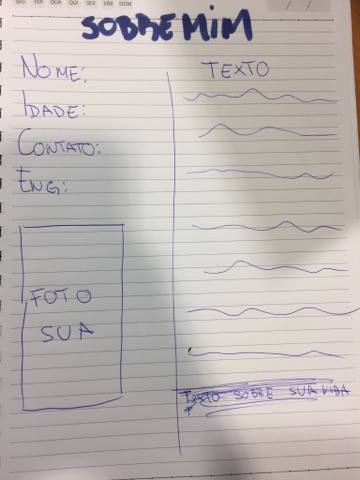 SEG TER QUA QUI SEX SÁB DOM
SOBRE MIM
NOME:
IDADE:
CONTATO:
ENG:
FOTO
SUA
TEXTO
TEXTO SOBRE SUA VIDA